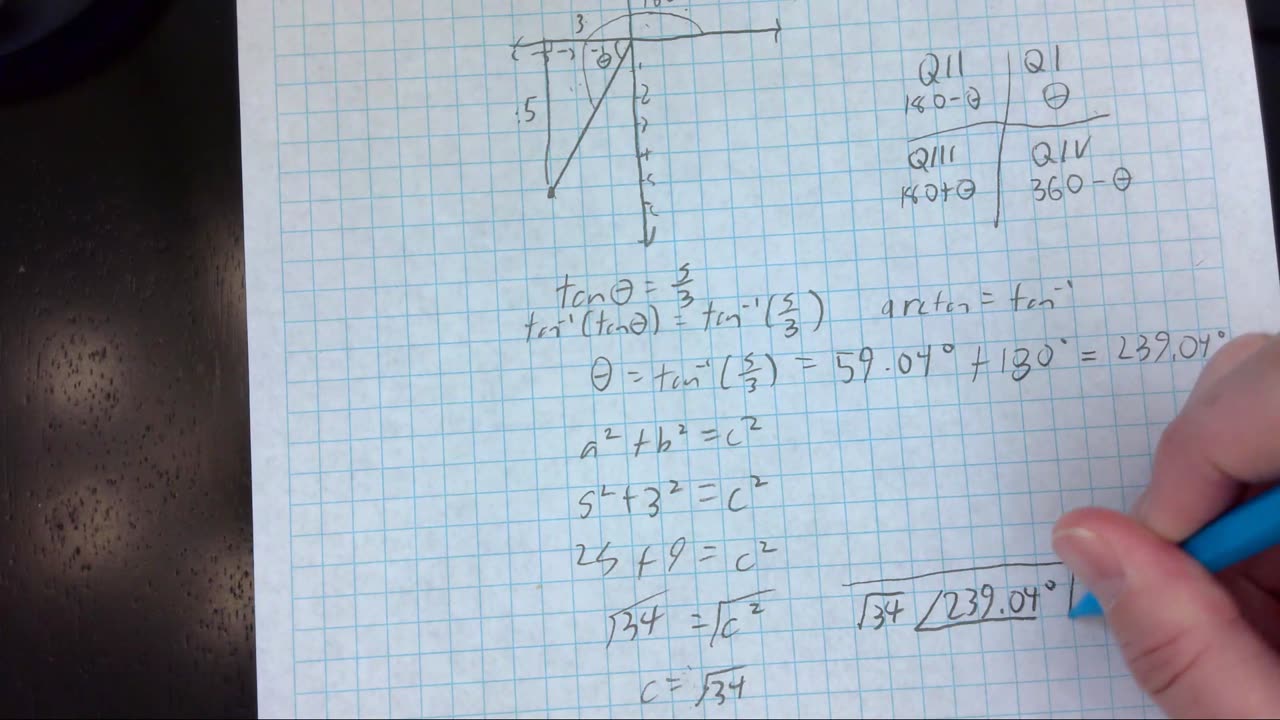 3
θ
.5
2
3
4
5
6
QII QI
180-θ θ
QIII QIV
180+θ 360-θ
tanθ = 5/3
tan⁻¹(tanθ) = tan⁻¹(5/3) arctan = tan⁻¹
θ = tan⁻¹(5/3) = 59.04° + 180° = 239.04°
a² + b² = c²
5² + 3² = c²
25 + 9 = c²
√34 = √c² √34 ∠239.04°
c = √34